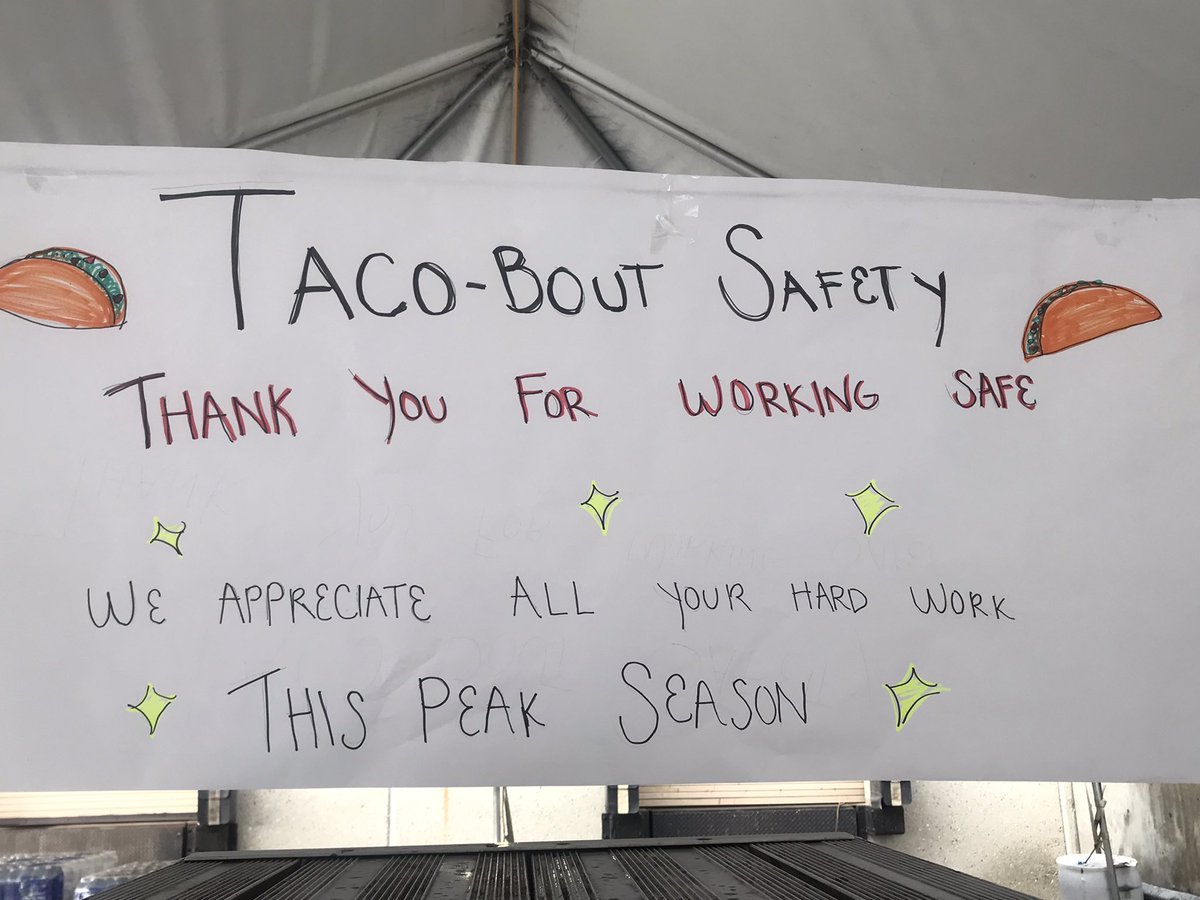 TACO-BOUT SAFETY
THANK YOU FOR WORKING SAFE
WE APPRECIATE ALL YOUR HARD WORK
THIS PEAK SEASON